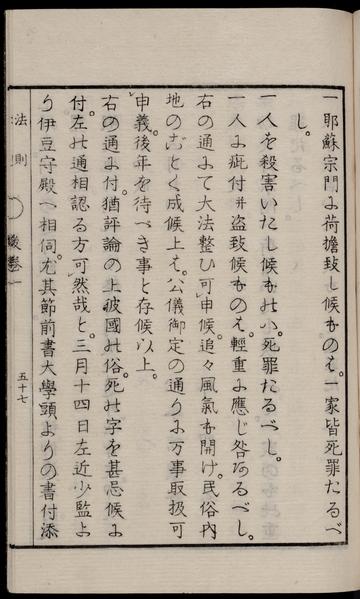 一耶蘇宗門ニ荷擔致し候ものハ。一家皆死罪たるべ
し。
一人を殺害いたし候ものハ。死罪たるべし。
一人ニ疵付。并盗致候ものハ。輕重ニ應じ咎あるべし。
右の通にて大法整ひ可申候。追々風氣も開け。民俗内
地のごとく成候上ハ。公儀御定の通りに万事取扱可
申義。後年を待べき事と存候以上。
右の通ニ付。猶評論の上彼國の俗。死の字を甚忌候ニ
付。左の通相認る方可然哉と。三月十四日左近少監よ
り伊豆守殿へ相伺。尤其節前書大學頭よりの書付添
法則
五十七